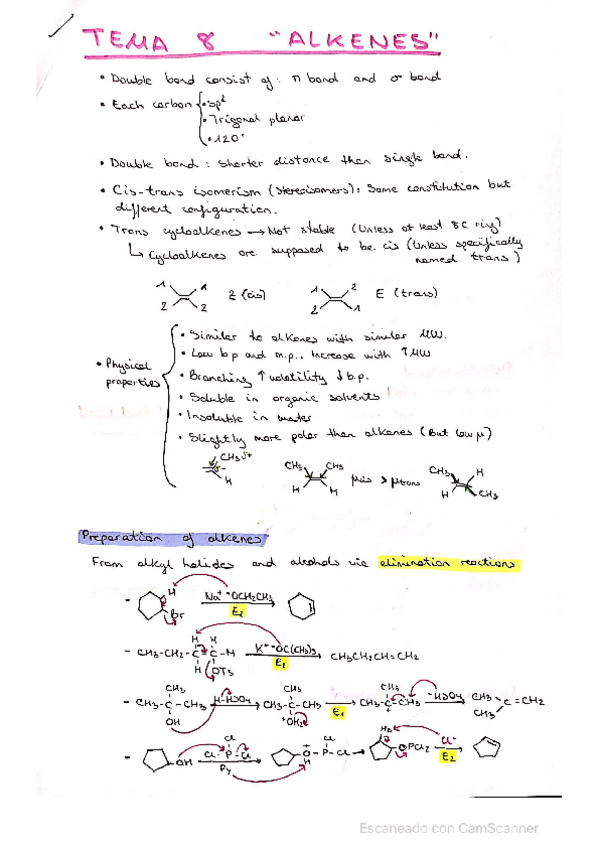 TEMA 8 "ALKENES"
• Double bond consist of: π bond and σ bond
• Each carbon • sp²
• Trigonal planar
• 120°
• Double bond: Shorter distance than single bond.
• Cis-trans isomerism (stereoisomers): Same constitution but
different configuration.
• Trans cycloalkenes → Not stable (Unless at least 8C ring)
↳ Cycloalkenes are supposed to be cis (Unless specifically
named trans)
1 1 2 2 Z (cis)
1 2 2 1 E (trans)
• Physical
properties
• Similar to alkenes with similar MW.
• Low b.p and m.p.. Increase with ↑MW
• Branching ↑volatility ↓b.p.
• Soluble in organic solvents
• Insoluble in water
• Slightly more polar than alkenes (But low μ)
CH3 δ+
H
CH3 CH3 H H
μcis > μtrans
CH3 H H CH3
Preparation of alkenes
From alkyl halides and alcohols via elimination reactions
- H Br Na+ -OCH2CH3 E2
- CH3-CH2-C-C-H H H H OTs K+ -OC(CH3)3 E2 CH3CH2CH=CH2
- CH3-C-CH3 CH3 OH H-HSO4 CH3-C-CH3 CH3 +OH2 E1 CH3-C-CH3 CH3 + -HSO4 CH3 CH3 C=CH2
- OH Cl-P-Cl Cl Py O-P-Cl Cl + H H OPCl2 Cl- E2
Escaneado con CamScanner